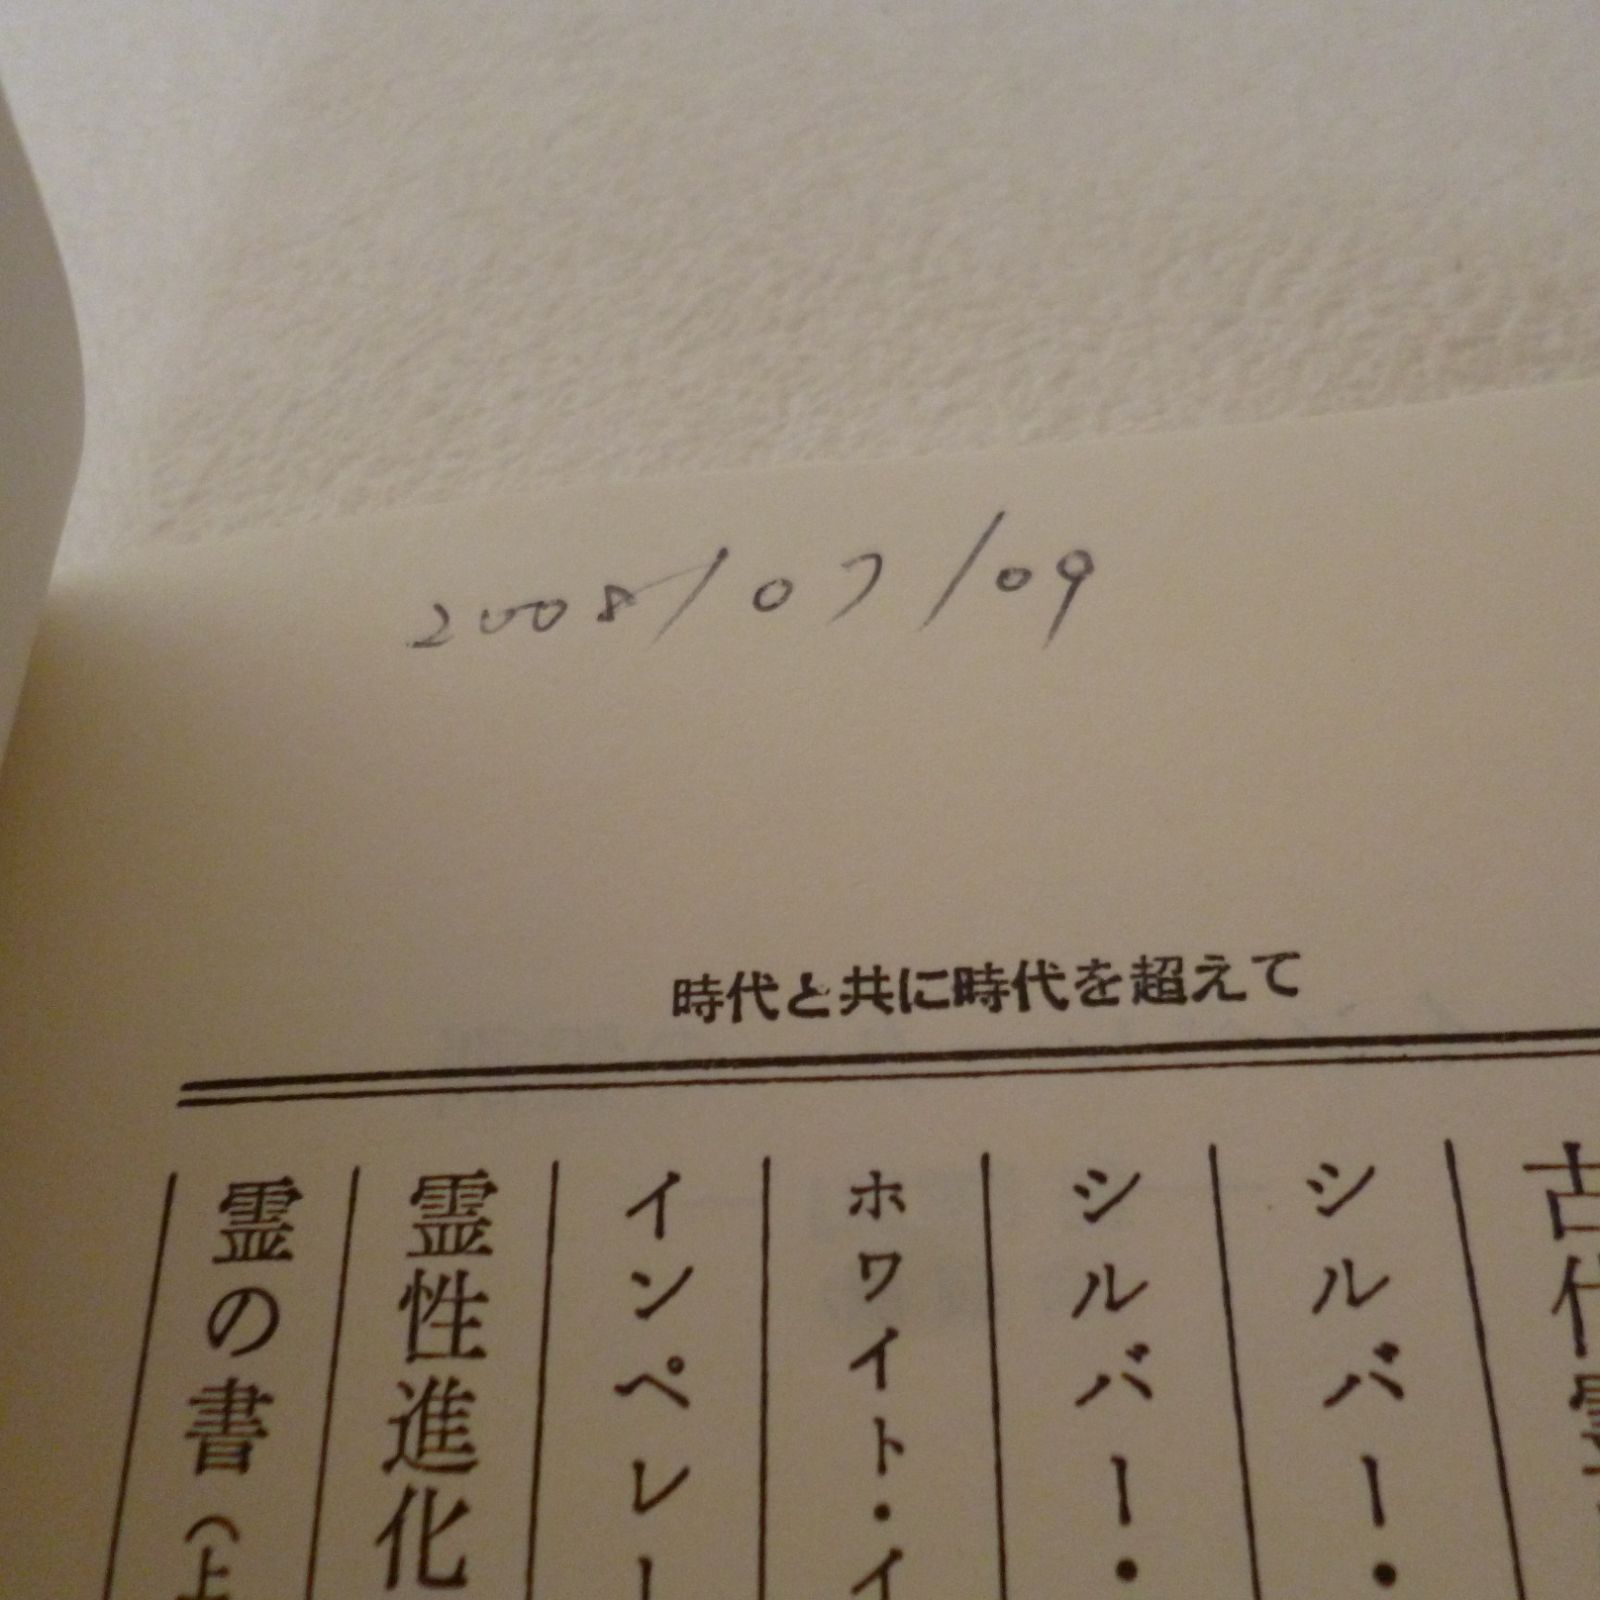 2008/07/09
時代と共に時代を超えて
シルバー・
シルバー・
ホワイト・イ
インペレー
霊性進化
霊の書（上